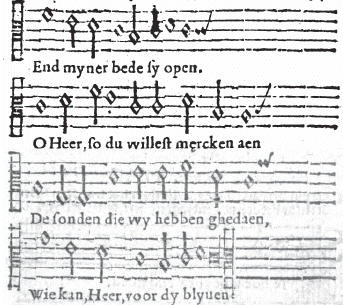 End myner bede sy open.
O Heer, so du willest mercken aen
De sonden die wy hebben ghedaen,
Wie kan, Heer, voor dy blyuen?